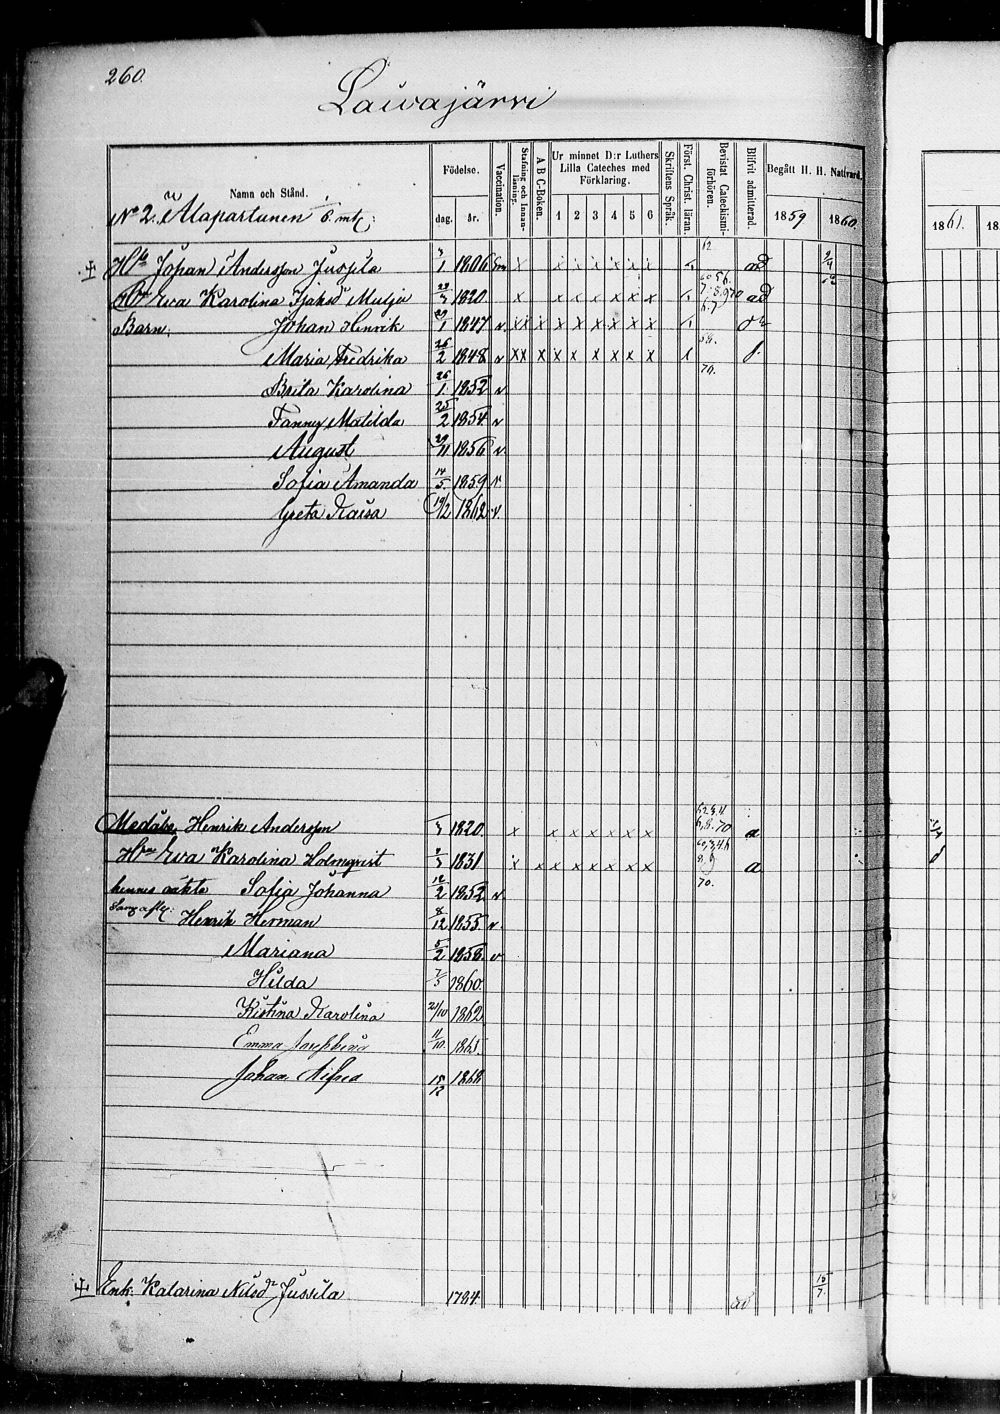 260.
Lawajärvi
Namn och Stånd.
Födelse.
dag.
år.
Vaccination.
Stafning och Innanläsning.
A B C-Boken.
Ur minnet D:r Luthers Lilla Cateches med Förklaring.
1 2 3 4 5 6
Skriftens Språk.
Först. Christ. läran.
Bevistat Catechismiförhören.
Blifvit admitterad.
Begått H. H. Nattvard.
1859 1860.
1861. 18
No 2. Alapartanen
Johan Andersson Jussila 1806 x x x x x x x ad
Eva Karolina Mulja 1820 x x x x x x x ad
Barn: Johan Henrik 29/1 1847 v. xx x x x x x x x
Maria Fredrika 26/2 1848 v xx x x x x x x x
Brita Karolina 26/1 1852 v
Fanny Matilda 25/2 1854 v
August 29/11 1856 v.
Sofia Amanda 14/5. 1859 v
Greta Kaisa 19/2 1862 v.
Henrik Andersson 1820. x x x x x x x a
Eva Karolina Holmqvist 1831 x x x x x x x a
hennes oäkta Sofia Johanna 12/2 1852 v.
Henrik Herman 8/12 1855. v.
Mariana 5/2 1858. v
Hilda 7/5 1860.
Kristina Karolina 21/10 1862
Emma Josephina 11/10. 1865.
Johan Alfred 15/12 1868
Enk. Katarina Nilsdr Jussila 1784. ad 15/7.